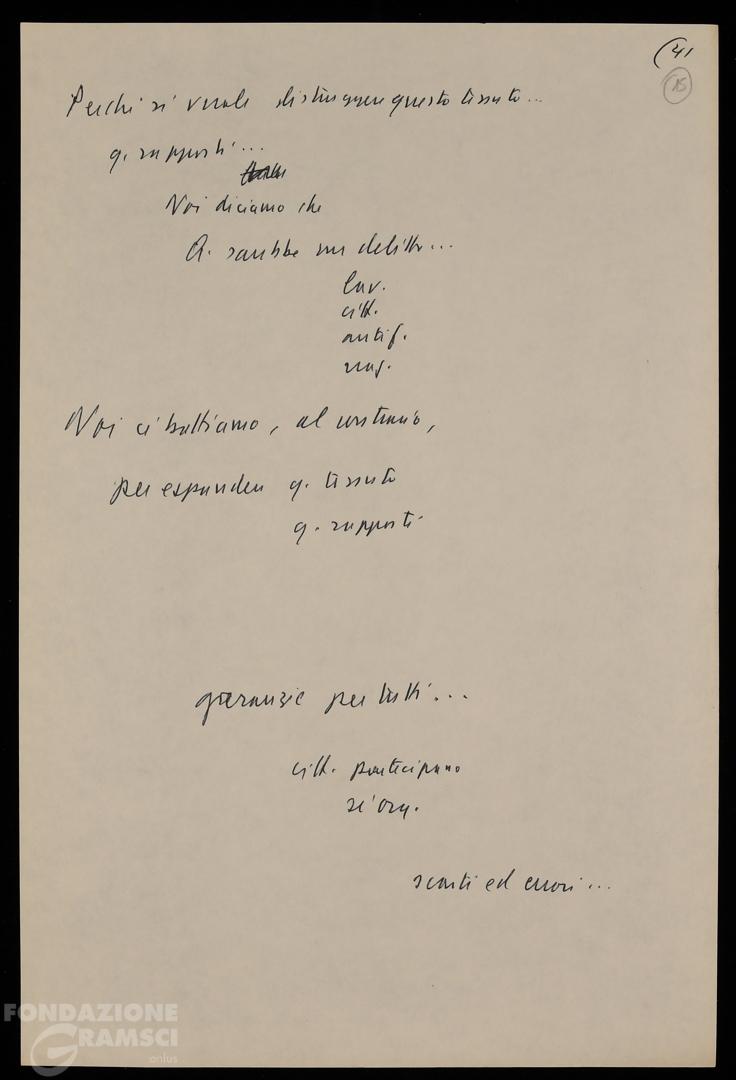 (41
15
Perché si vuole distruggere questo tessuto...
q. rapporti...
Noi diciamo che
Q. sarebbe un delitto...
lav.
citt.
antif.
Noi ci battiamo, al contrario,
per espandere q. tessuto
q. rapporti
garanzie per tutti...
citt. partecipano
si org.
scarti ed errori...
FONDAZIONE
GRAMSCI
onlus